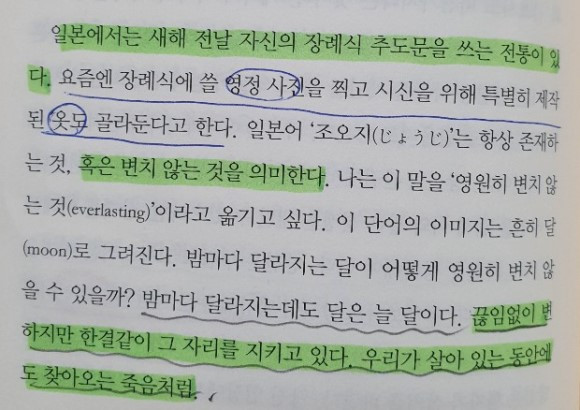 일본에서는 새해 전날 자신의 장례식 추도문을 쓰는 전통이 있
다. 요즘엔 장례식에 쓸 영정 사진을 찍고 시신을 위해 특별히 제작
된 옷도 골라둔다고 한다. 일본어 ‘조오지(じょうじ)’는 항상 존재하
는 것, 혹은 변치 않는 것을 의미한다. 나는 이 말을 ‘영원히 변치 않
는 것(everlasting)’이라고 옮기고 싶다. 이 단어의 이미지는 흔히 달
(moon)로 그려진다. 밤마다 달라지는 달이 어떻게 영원히 변치 않
을 수 있을까? 밤마다 달라지는데도 달은 늘 달이다. 끊임없이 변
하지만 한결같이 그 자리를 지키고 있다. 우리가 살아 있는 동안에
도 찾아오는 죽음처럼.